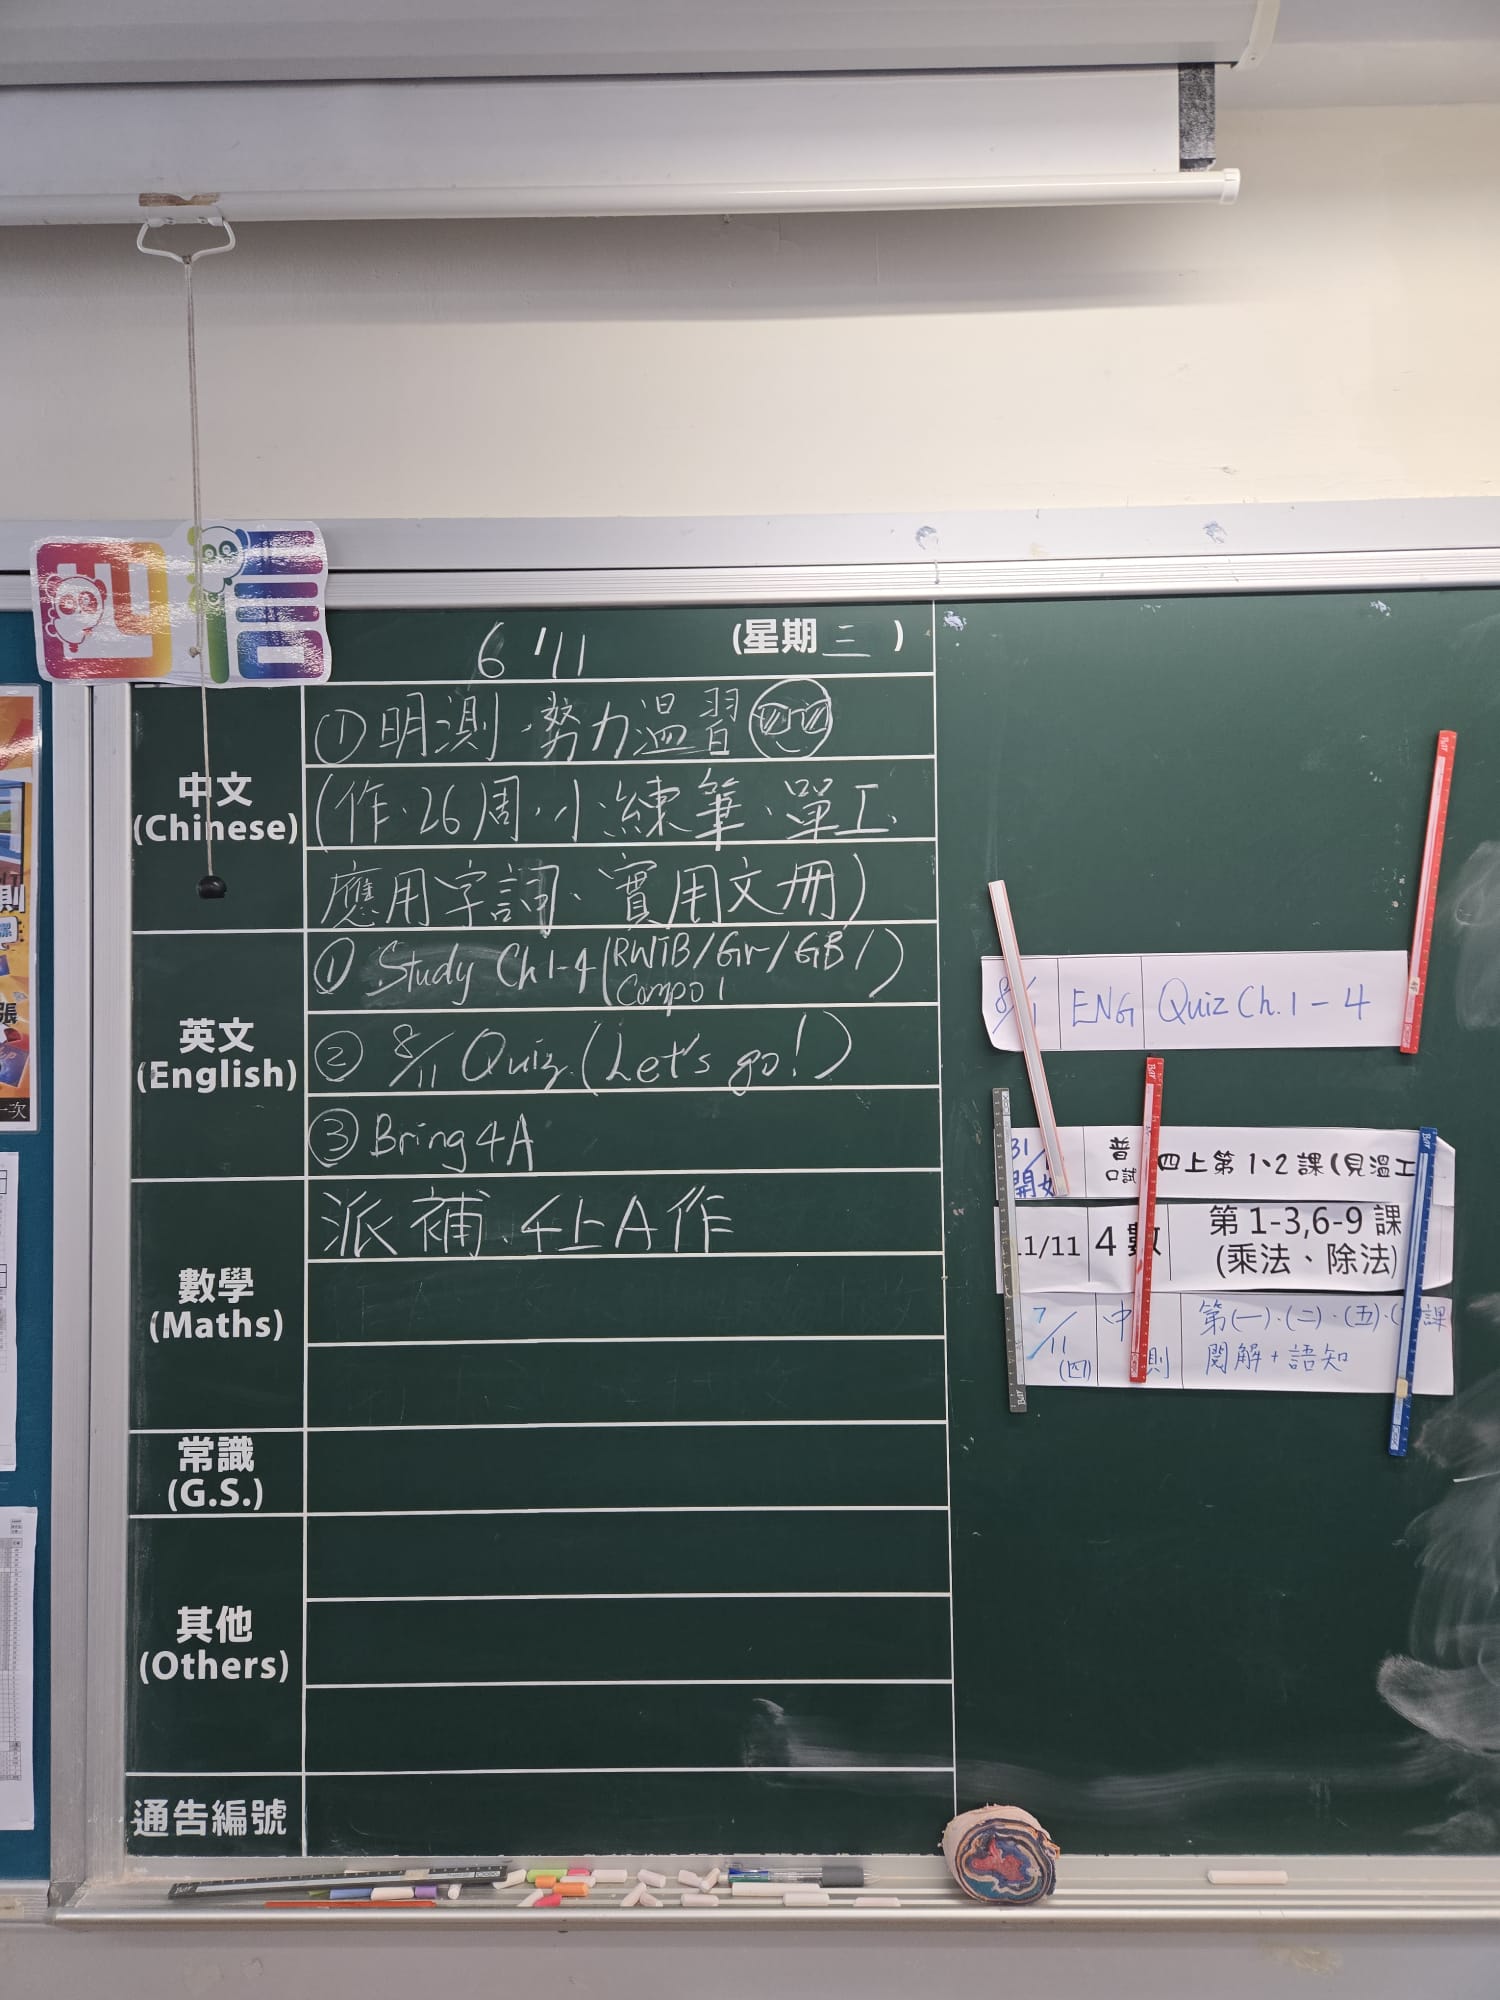 四信
6/11 (星期三)
中文
(Chinese)
①明測,努力溫習
(作、26周、小練筆、單工、
應用字詞、實用文冊)
英文
(English)
① Study Ch 1-4 (RWTB/Gr/GB/
Compo 1)
② 8/11 Quiz (Let's go!)
③ Bring 4A
數學
(Maths)
派補、4上A作
常識
(G.S.)
其他
(Others)
通告編號
8/11 ENG Quiz Ch. 1 – 4
31/ 開始 普 口試 四上第1、2課(見溫工
11/11 4數 第 1-3,6-9 課
(乘法、除法)
7/11 (四) 中 第(一)、(二)、(五)、( 課
閱解+語知